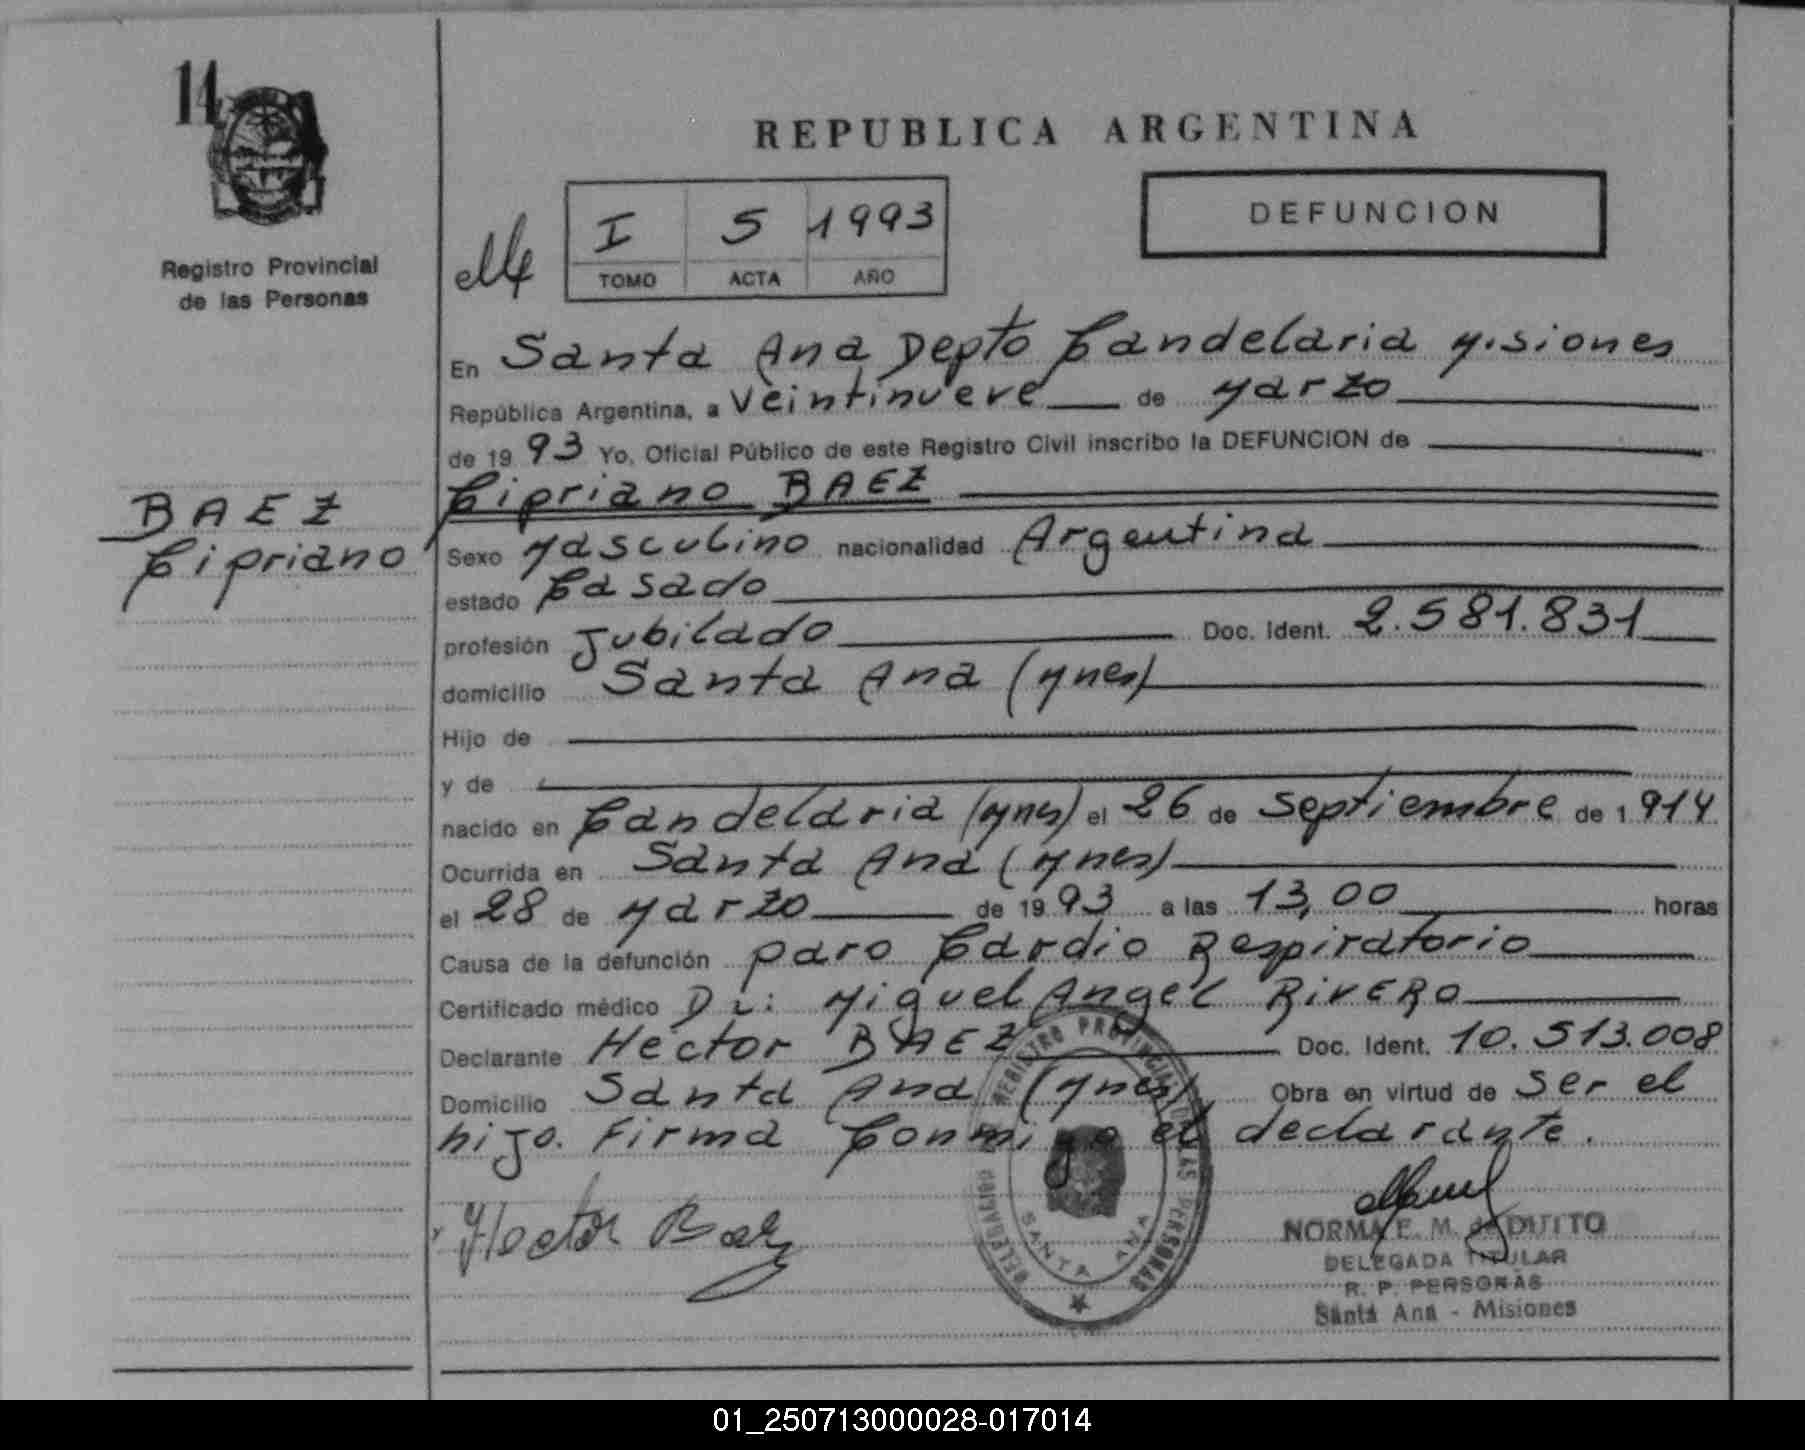 14
Registro Provincial
de las Personas
BAEZ
Cipriano
REPUBLICA ARGENTINA
I 5 1993
TOMO ACTA AÑO
DEFUNCION
En Santa Ana Depto Candelaria Misiones
República Argentina, a Veintinueve de Marzo
de 1993 Yo, Oficial Público de este Registro Civil inscribo la DEFUNCION de
Cipriano BAEZ
Sexo Masculino nacionalidad Argentina
estado Casado
profesión Jubilado Doc. Ident. 2.581.831
domicilio Santa Ana (Mnes)
Hijo de
y de
nacido en Candelaria (Mnes) el 26 de Septiembre de 1914
Ocurrida en Santa Ana (Mnes)
el 28 de Marzo de 1993 a las 13,00 horas
Causa de la defunción paro Cardio Respiratorio
Certificado médico Dr: Miguel Angel RIVERO
Declarante Hector BAEZ Doc. Ident. 10.513.008
Domicilio Santa Ana (Mnes) Obra en virtud de Ser el
hijo. Firma Conmigo el declarante.
Hector Baez
REGISTRO PROVINCIAL DE LAS PERSONAS
SANTA ANA
NORMA E. M. de DUTTO
DELEGADA TITULAR
R. P. PERSONAS
Santa Ana - Misiones
01_250713000028-017014